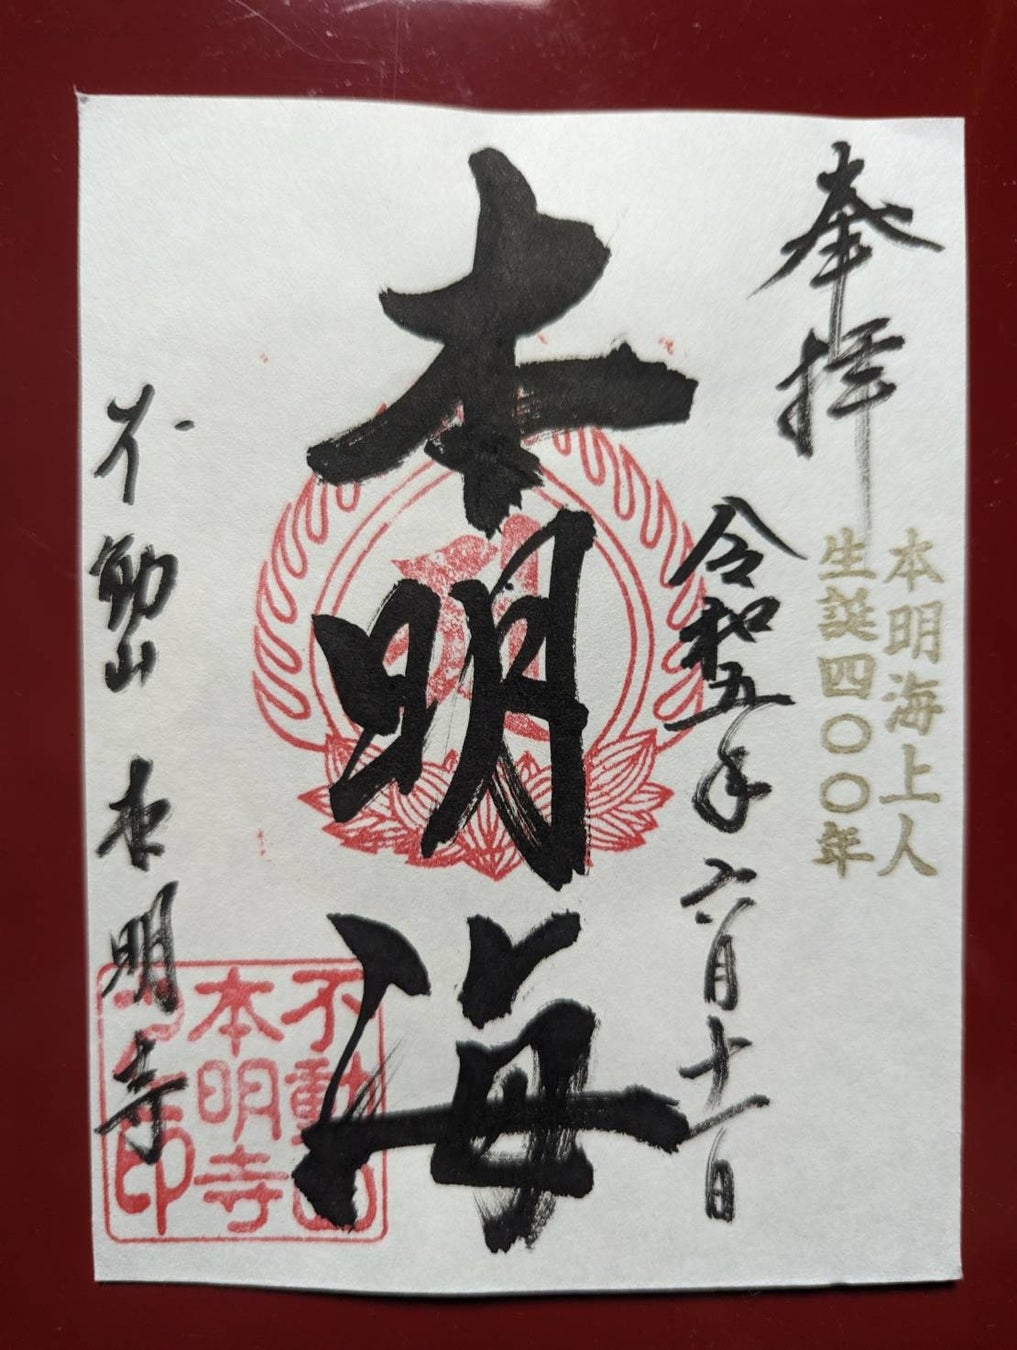 奉拝
本明海上人
生誕四〇〇年
令和五年六月十一日
本明海
不動山 本明寺
不動山
本明寺
印